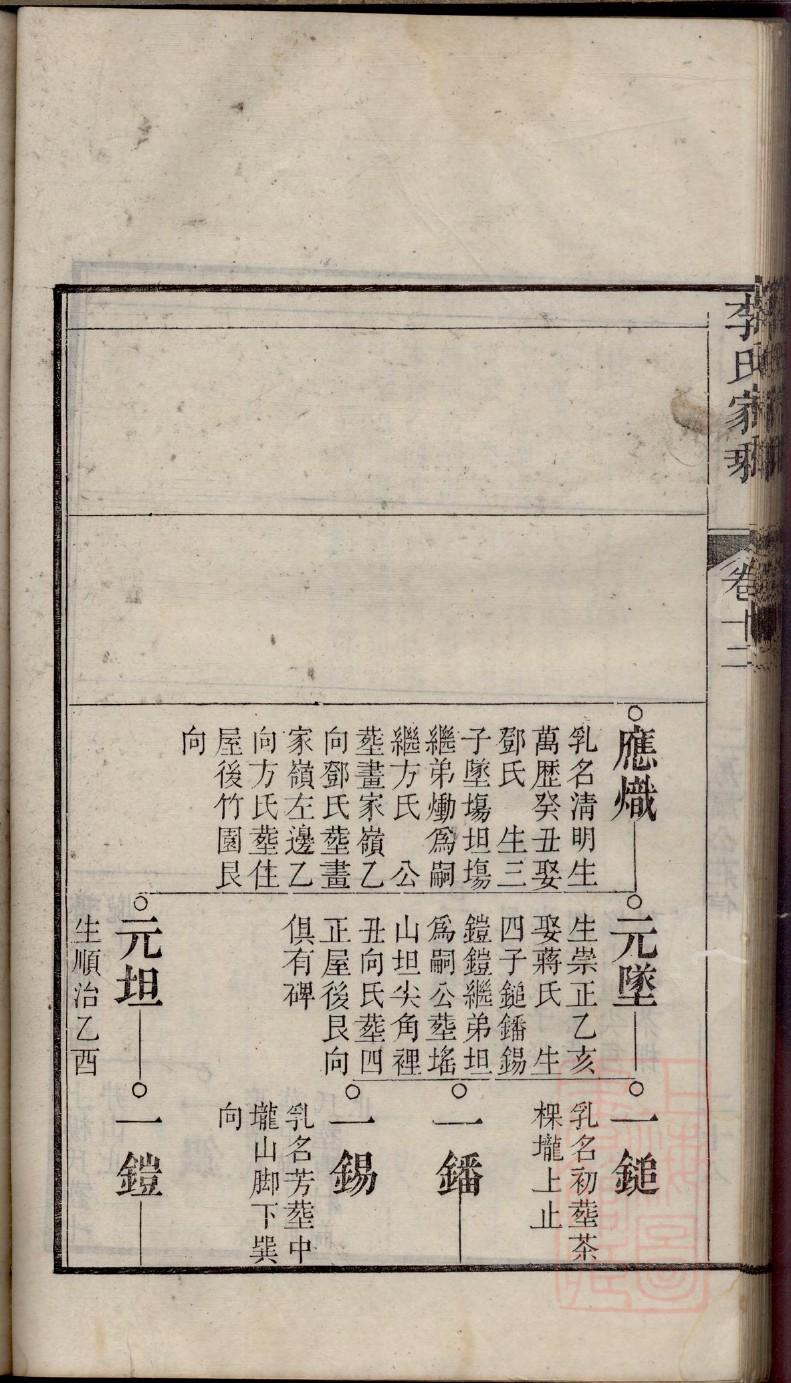 李氏家乘
卷十二
應熾
乳名清明生
萬歷癸丑娶
鄧氏 生三
子墜塲坦塲
繼弟爋爲嗣
繼方氏 公
塟畫家嶺乙
向鄧氏塟畫
家嶺左邊乙
向方氏塟住
屋後竹園艮
向
元墜
生崇正乙亥
娶蔣氏 生
四子鎚鐇錫
鎧鎧繼弟坦
爲嗣公塟塎
山坦尖角裡
丑向氏塟四
正屋後艮向
俱有碑
元坦
生順治乙酉
一鎚
乳名初塟茶
棵壠上止
一鐇
一錫
乳名芳塟中
壠山脚下巽
向
一鎧